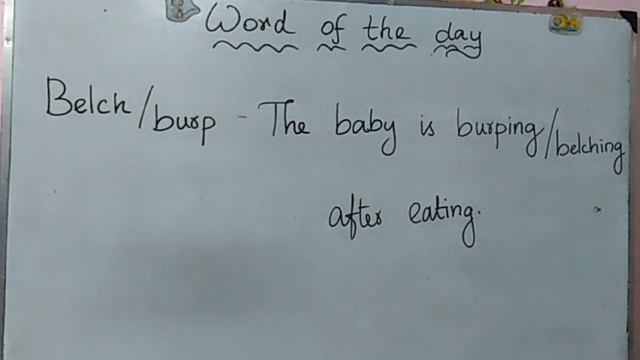 Word of the day
Belch/burp - The baby is burping/belching
after eating.